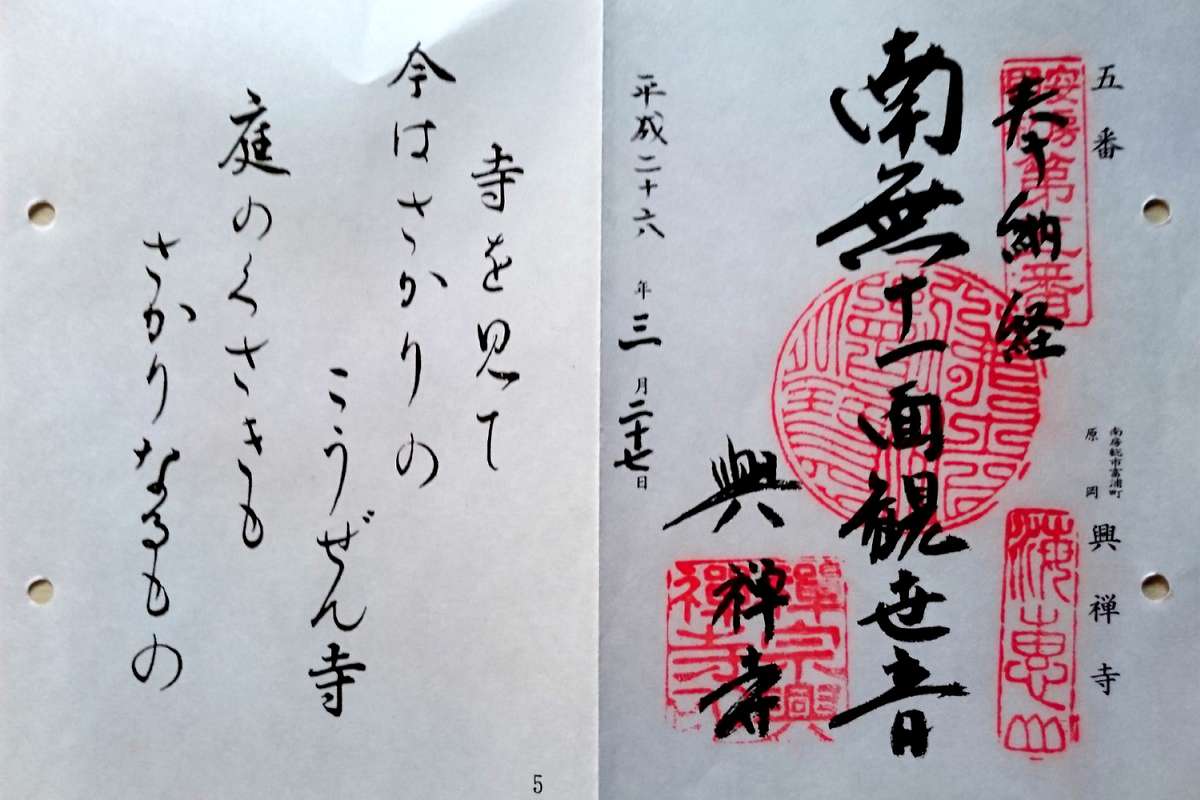 五番
南房総市富浦町
原岡
興禅寺
奉納経
第五番
海恵山
南無十一面観世音
興禅寺
平成二十六年三月二十七日
寺を見て
今はさかりの
こうぜん寺
庭のくさきも
さかりなるもの
5